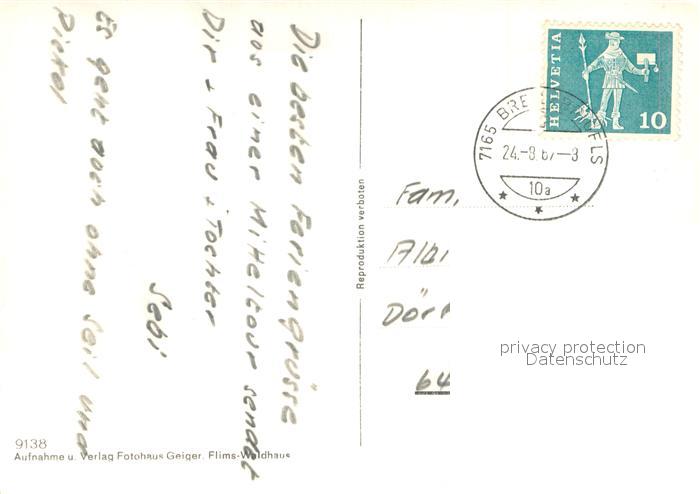 Die besten Feriengrüsse
aus einer Mitteltour sendet
Dir + Frau + Tochter
Sebi
Es geht auch ohne Seil und
Pickel
9138
Aufnahme u. Verlag Fotohaus Geiger, Flims-Waldhaus
Reproduktion verboten
HELVETIA
10
7165 BRE FELS
24.-8.67-8
10a
Fam.
Albi
Dorf
64
privacy protection
Datenschutz